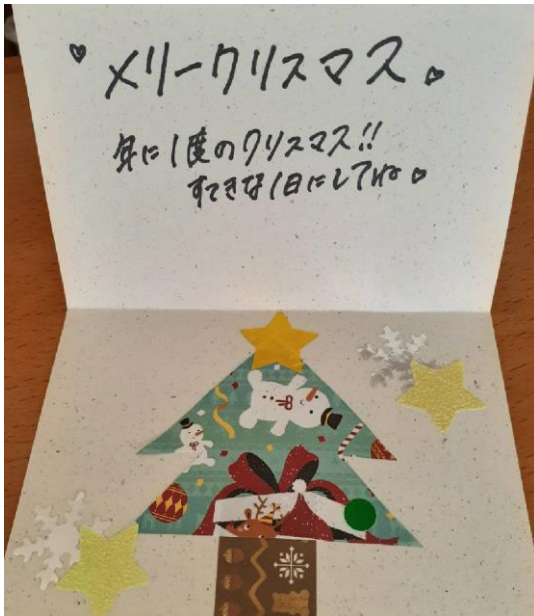 ♡メリークリスマス♡
年に1度のクリスマス!!
すてきな1日にしてね♡